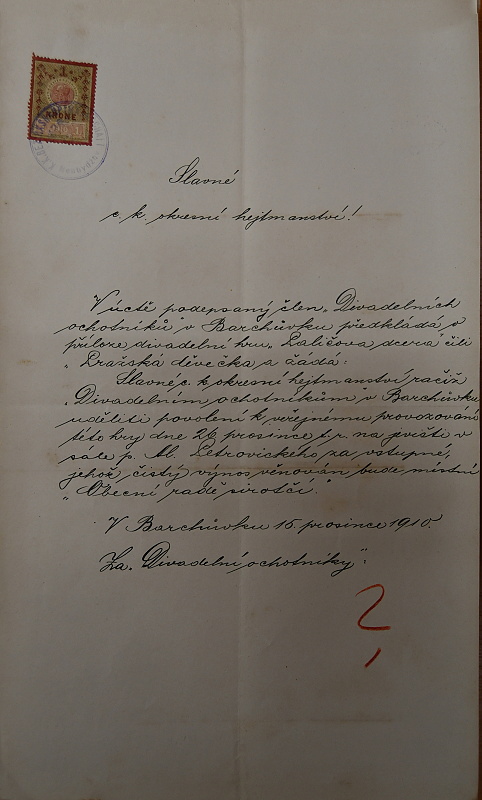 1
KRONE
Slavné
c. k. okresní hejtmanství!
V úctě podepsaný člen „Divadelních
ochotníků" v Barchůvku předkládá v
příloze divadelní hru „Paličova dcera" čili
„Pražská děvečka" a žádá:
Slavné c. k. okresní hejtmanství račiž
„Divadelním ochotníkům" v Barchůvku
uděliti povolení k veřejnému provozování
této hry dne 26 prosince t. r. na jevišti v
sále p. Al. Petrovického za vstupné,
jehož čistý výnos věnován bude místní
„Obecní radě sirotčí."
V Barchůvku 15. prosince 1910.
Za „Divadelní ochotníky":